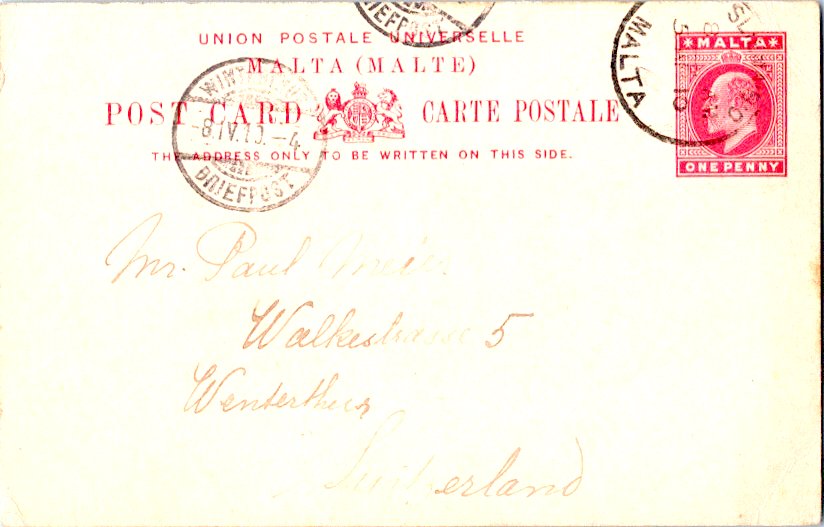 BRIEFPOST
UNION POSTALE UNIVERSELLE
MALTA (MALTE)
POST CARD CARTE POSTALE
THE ADDRESS ONLY TO BE WRITTEN ON THIS SIDE.
-8.IV.10.-4
BRIEFPOST
MALTA
MALTA
ONE PENNY
Mr. Paul Meier
Walkestrasse 5
Wenterthur
Switzerland